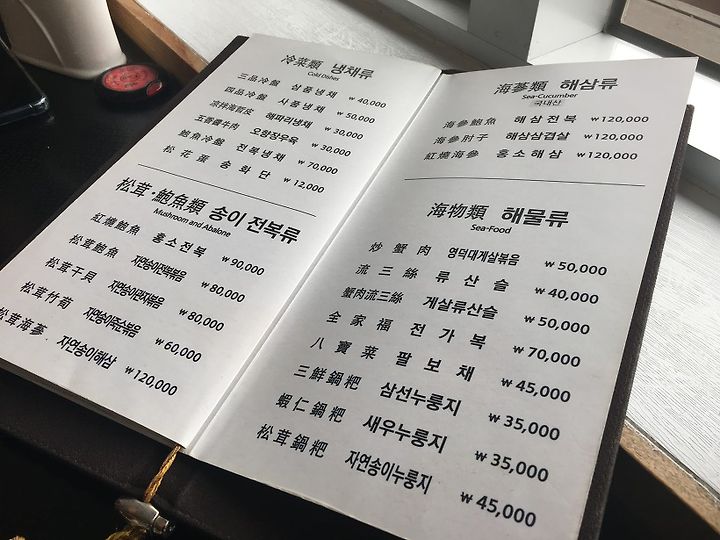 冷菜類 냉채류
Cold Dishes
三品冷盤 삼품냉채 ₩40,000
四品冷盤 사품냉채 ₩50,000
凉拌海蜇皮 해파리냉채 ₩30,000
五香醬牛肉 오향장우육 ₩30,000
鮑魚冷盤 전복냉채 ₩70,000
松花蛋 송화단 ₩12,000
松茸·鮑魚類 송이 전복류
Mushroom and Abalone
紅燒鮑魚 홍소전복 ₩90,000
松茸鮑魚 자연송이전복볶음 ₩80,000
松茸干貝 자연송이관자볶음 ₩80,000
松茸竹荀 자연송이죽순볶음 ₩60,000
松茸海蔘 자연송이해삼 ₩120,000
海蔘類 해삼류
Sea-Cucumber
국내산
海參鮑魚 해삼전복 ₩120,000
海參肘子 해삼삼겹살 ₩120,000
紅燒海參 홍소해삼 ₩120,000
海物類 해물류
Sea-Food
炒蟹肉 영덕대게살볶음 ₩50,000
流三絲 류산슬 ₩40,000
蟹肉流三絲 게살류산슬 ₩50,000
全家福 전가복 ₩70,000
八寶菜 팔보채 ₩45,000
三鮮鍋粑 삼선누룽지 ₩35,000
蝦仁鍋粑 새우누룽지 ₩35,000
松茸鍋粑 자연송이누룽지 ₩45,000